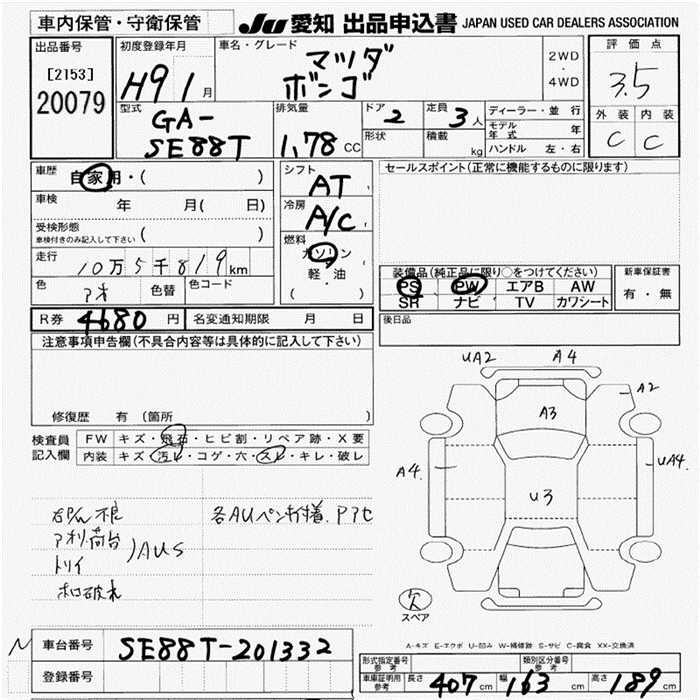 車内保管・守衛保管
JU 愛知 出品申込書 JAPAN USED CAR DEALERS ASSOCIATION
出品番号
[2153]
20079
初度登録年月
H9 1 月
車名・グレード
マツダ
ボンゴ
2WD
・
4WD
評価点
3.5
型式
GA-
SE88T
排気量
1,78 CC
ドア 2
定員 3 人
形状
積載 kg
ディーラー・並行
モデル年式 年
ハンドル 左・右
外装 内装
C C
車歴 自家用・( )
車検 年 月( 日)
受検形態
車検付きのみ記入して下さい ( )
走行 10万5千819km
色 アオ 色替 色コード
シフト
AT
冷房
A/C
燃料
ガソリン
軽・油
( )
セールスポイント(正常に機能するものに限ります)
装備品(純正品に限り○をつけてください)
PS PW エアB AW
SR ナビ TV カワシート
新車保証書
有・無
R券 4680 円 名変通知期限 月 日
後日品
注意事項申告欄(不具合内容等は具体的に記入して下さい)
修復歴 有(箇所 )
検査員
記入欄
FW キズ・飛石・ヒビ割・リペア跡・X要
内装 キズ・汚レ・コゲ・穴・スレ・キレ・破レ
アオリ荷台
トリイ
AUS
各AUペンキ付着、
UA2 A4
A2
A3
A4
UA4
U3
欠
スペア
A-キズ E-エクボ U-凹み W-補修跡 S-サビ C-腐食 XX-交換済
N
車台番号 SE88T-201332
登録番号
形式指定番号
参考
類別区分番号
参考
車庫証明用
参考
長さ 407 cm 幅 163 cm 高さ 189 cm